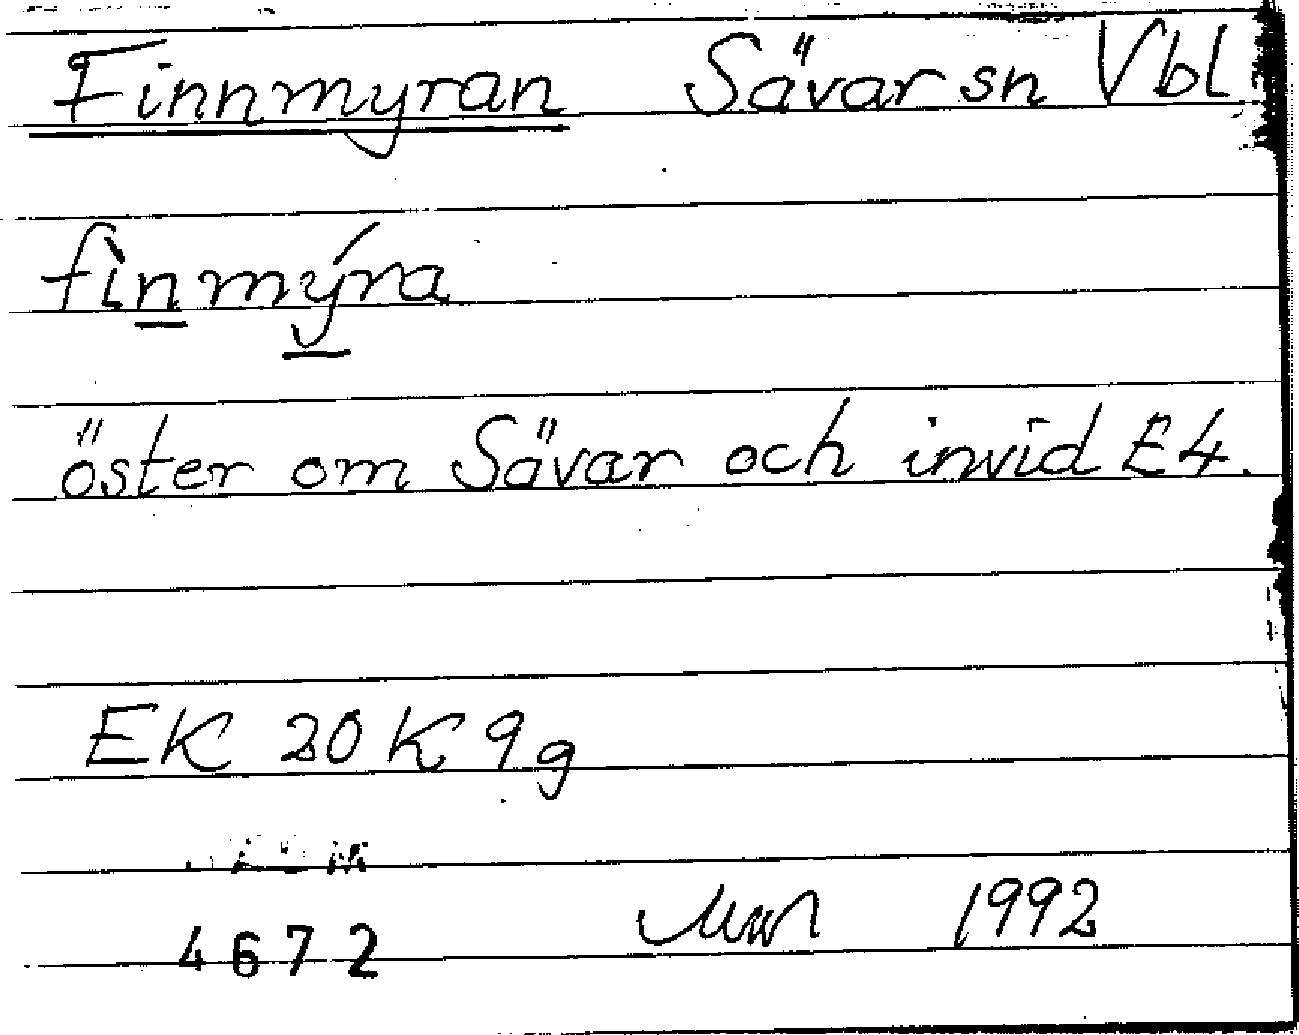 Finnmyran Sävar sn Vbl
fìnmýra
öster om Sävar och invid E4.
EK 20K 9g
4672 1992